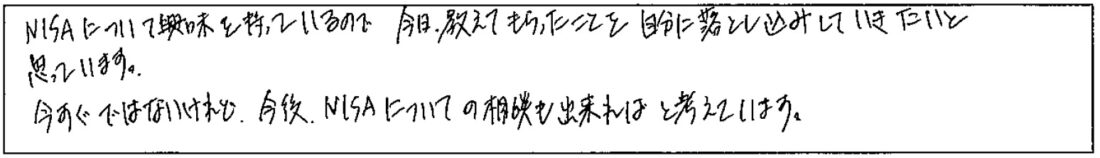 NISAについて興味を持っているので 今日、教えてもらったことを 自分に落とし込みしていきたいと
思っています。
今すぐではないけれど、今後、NISAについての相談も出来ればと考えています。